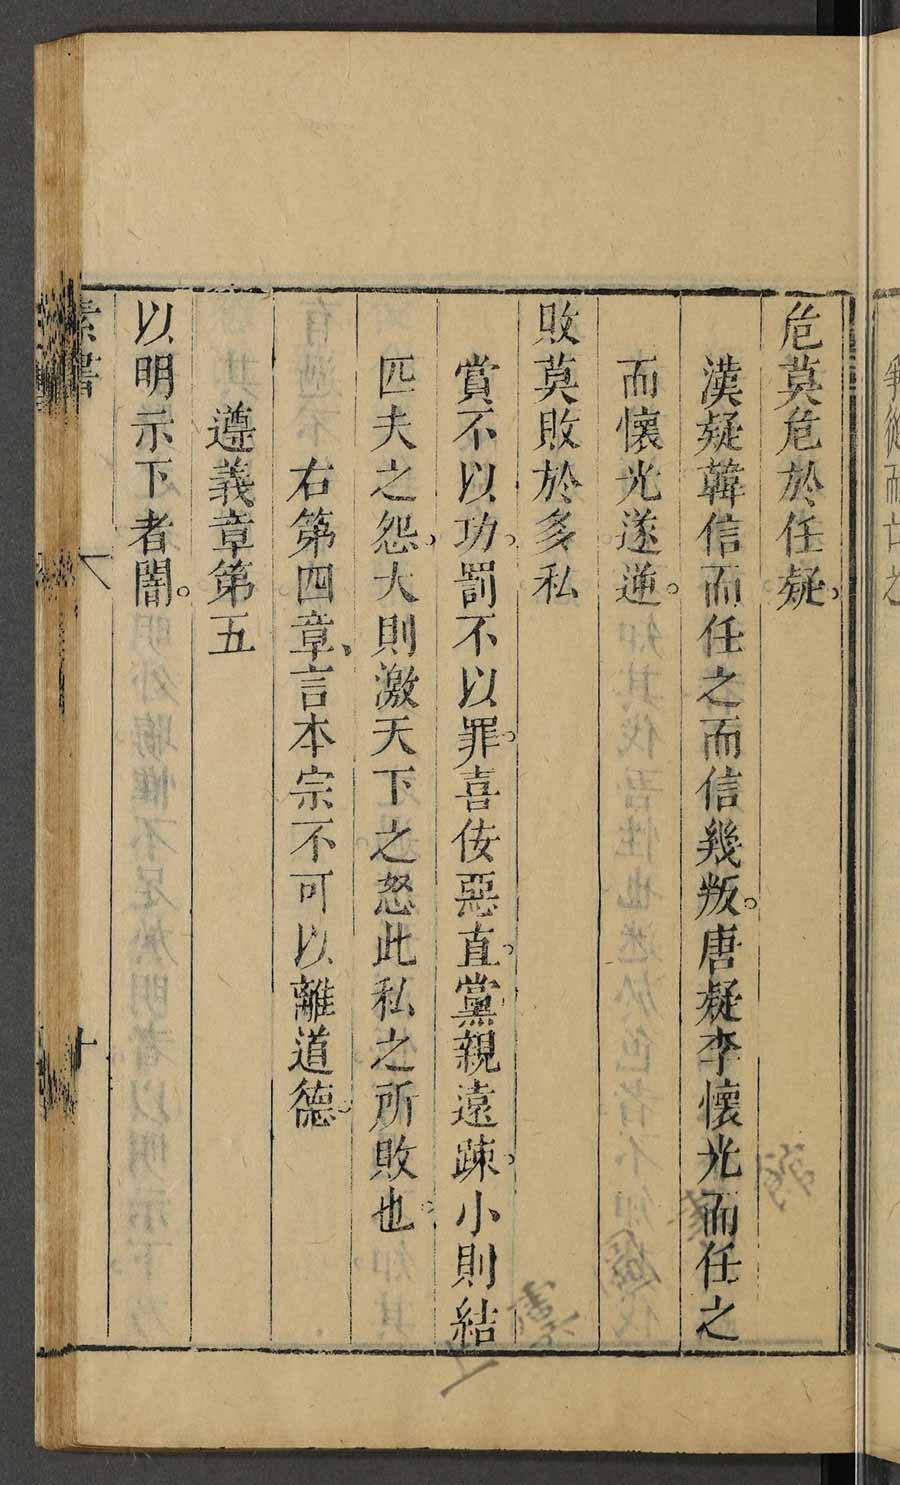 危莫危於任疑。
漢疑韓信而任之而信幾叛。唐疑李懷光而任之
而懷光遂逆。
敗莫敗於多私
賞不以功。罰不以罪。喜佞惡直。黨親遠疎。小則結
匹夫之怨。大則激天下之怒此私之所敗也。
右第四章、言本宗不可以離道德。
遵義章第五
以明示下者闇。
素書
十